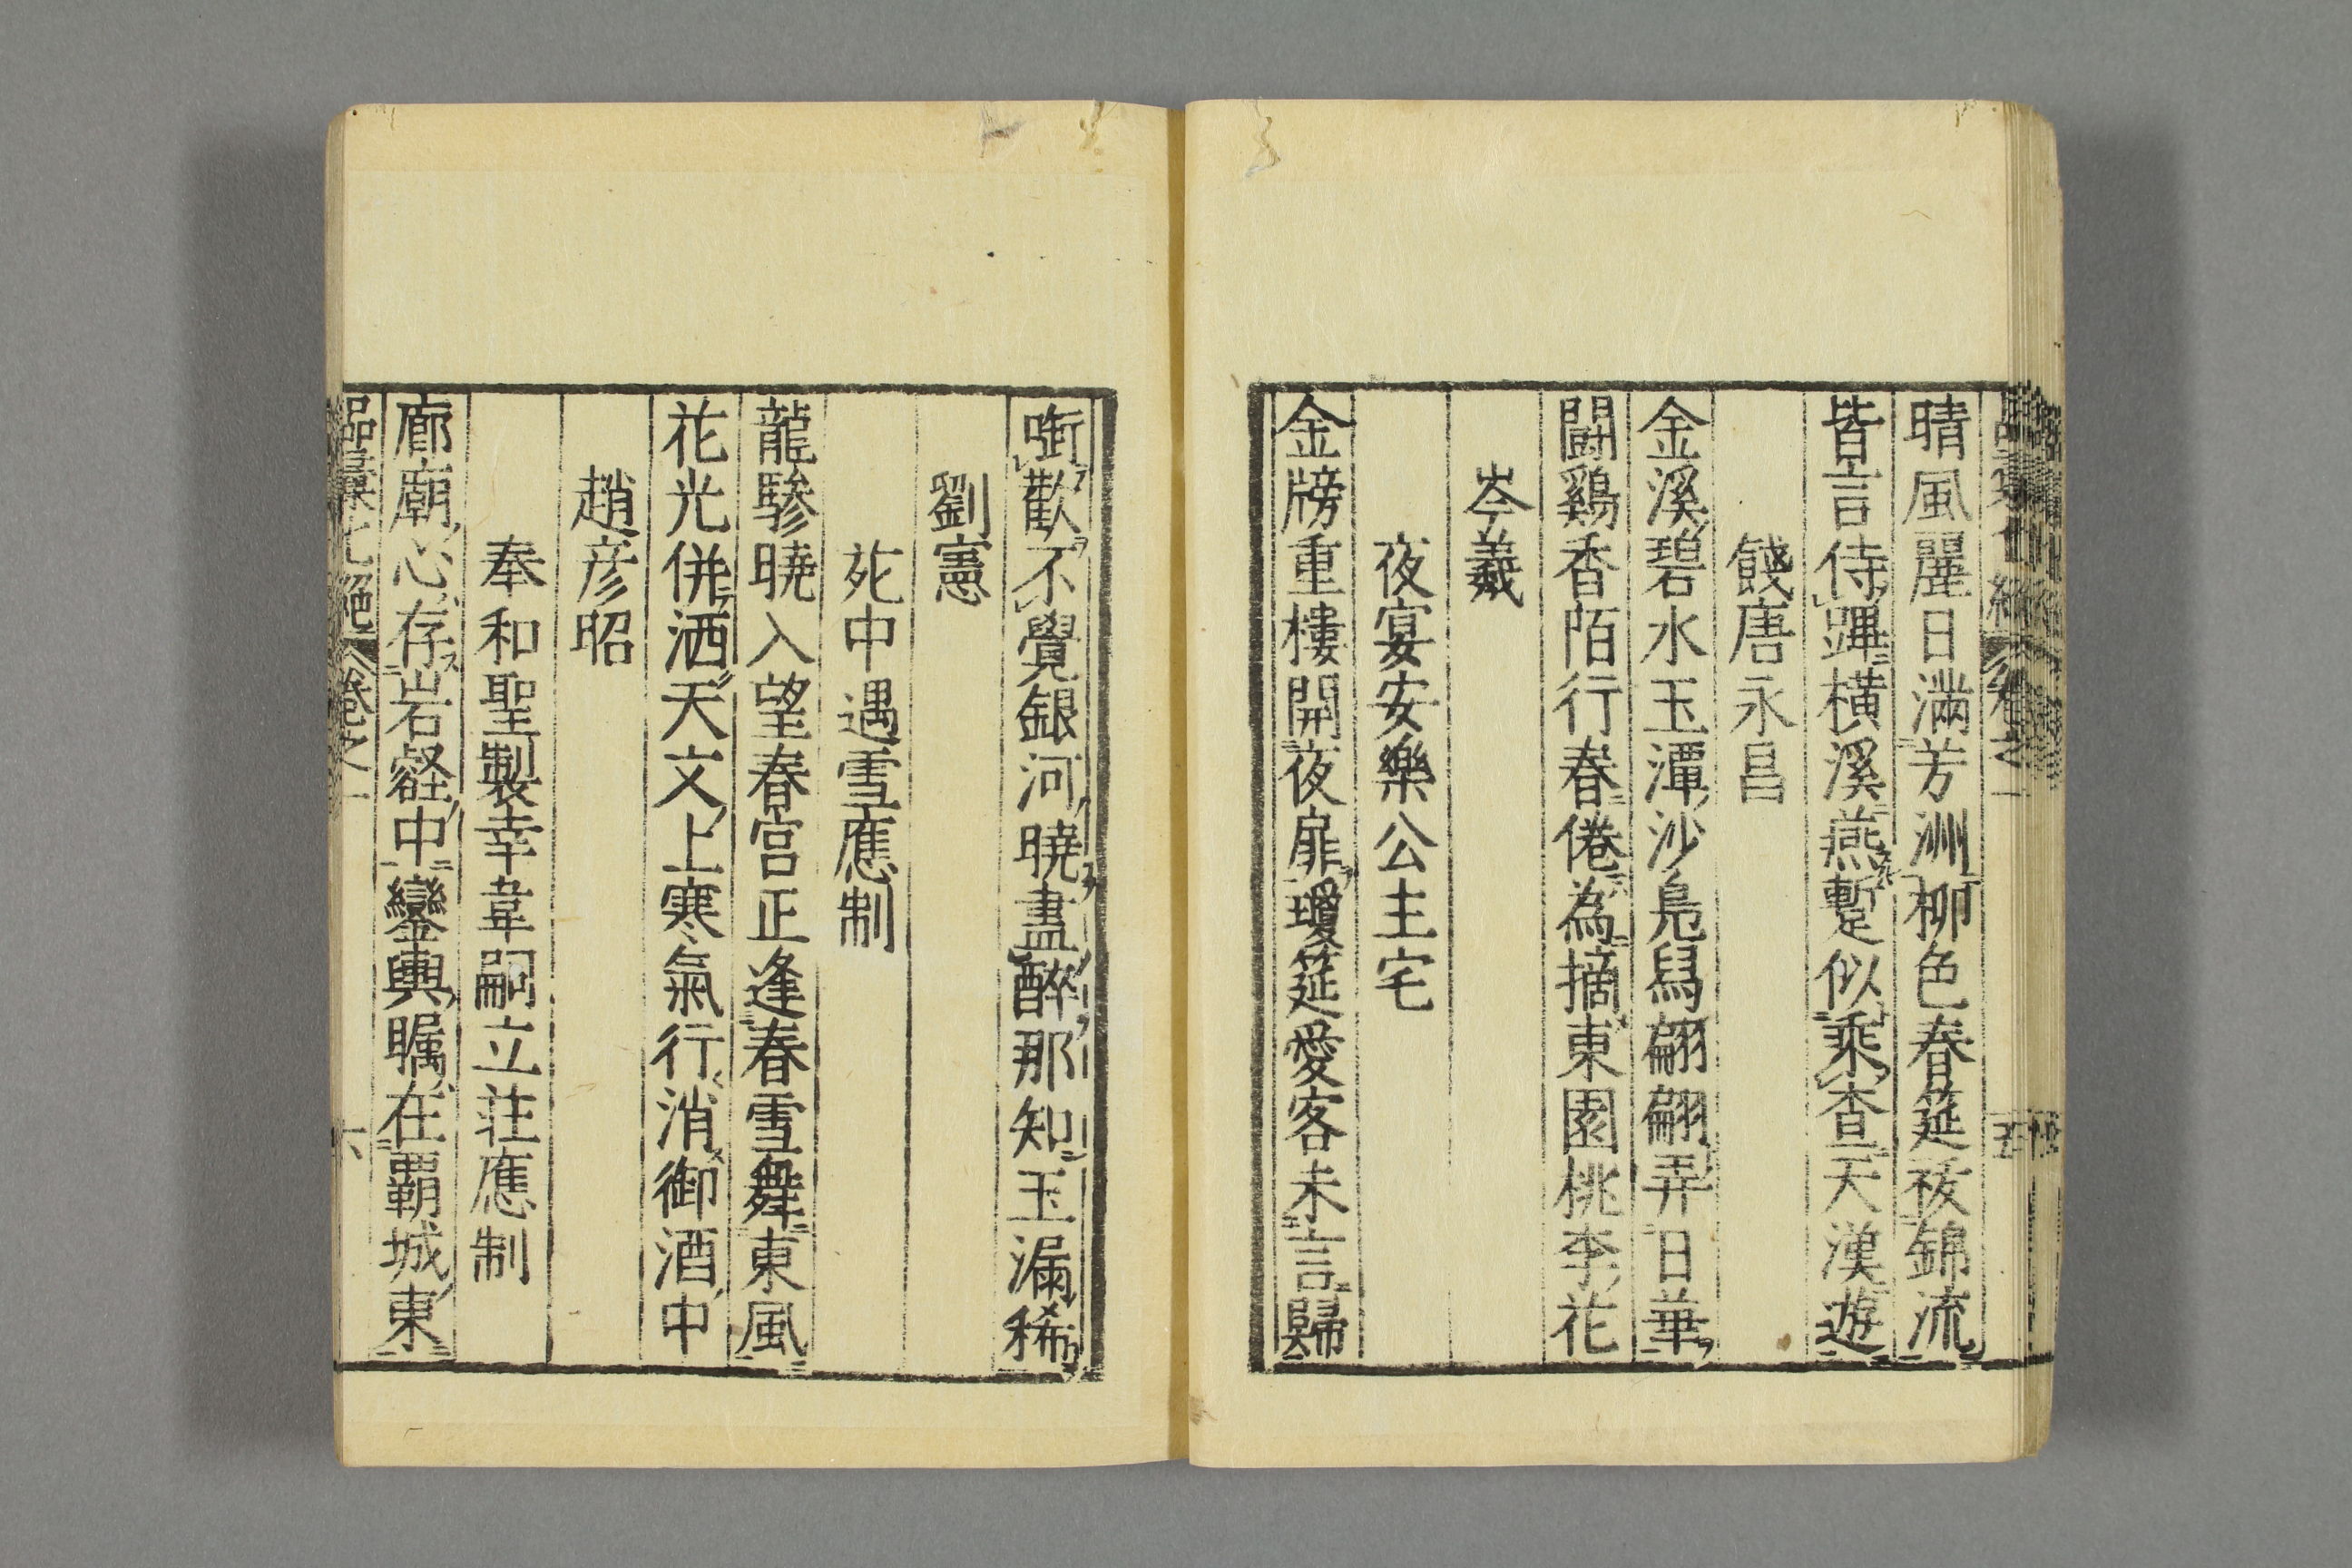 晴風麗日滿芳洲柳色春筵祓錦流
皆言侍蹕橫溪燕蹔似乘査天漢遊
餞唐永昌
金溪碧水玉潭沙鳧舄翩翩弄日華
鬪鷄香陌行春倦為摘東園桃李花
岑羲
夜宴安樂公主宅
金牓重樓開夜扉瓊筵愛客未言歸
啣歡不覺銀河曉盡醉那知玉漏稀
劉憲
苑中遇雪應制
龍驂曉入望春宮正逢春雪舞東風
花光併洒天文上寒氣行消御酒中
趙彦昭
奉和聖製幸韋嗣立荘應制
廊廟心存岩壑中鑾輿矚在覇城東
品彙七絶 卷之一 六